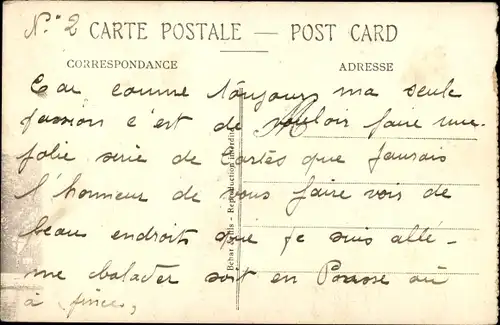 N.° 2 CARTE POSTALE — POST CARD
CORRESPONDANCE
ADRESSE
Car comme toujours ma seule
passion c'est de Vouloir faire une
jolie serie de Cartes que J'aurais
l'honneur de vous faire voir de
beaux endroits que je suis allé
me balader soit en où
à
Behar Fills - Reproduction interdite